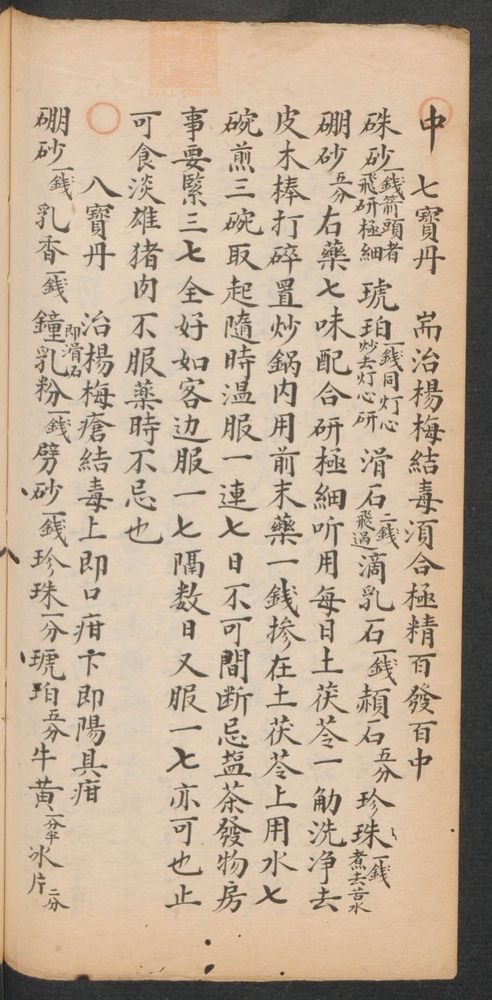 中 七寳丹 耑治楊梅結毒湏合極精百發百中
硃砂一錢箭頭者飛研極細 琥珀一錢同灯心炒去灯心研 滑石二錢飛過 滴乳石一錢 頳石五分 珍珠一錢煮去苦水
硼砂五分 右藥七味配合研極細听用每日土茯苓一觔洗净去
皮木棒打碎置炒鍋内用前末藥一錢摻在土茯苓上用水七
碗煎三碗取起隨時温服一連七日不可間断忌盐茶發物房
事要緊三七全好如客边服一七隔数日又服一七亦可也止
可食淡雄猪肉不服藥時不忌也
八寳丹 治楊梅瘡結毒上即口疳下即陽具疳
硼砂一錢 乳香一錢 鐘乳粉即滑石一錢 劈砂一錢 珍珠一分 琥珀五分 牛黄一分半 冰片二分